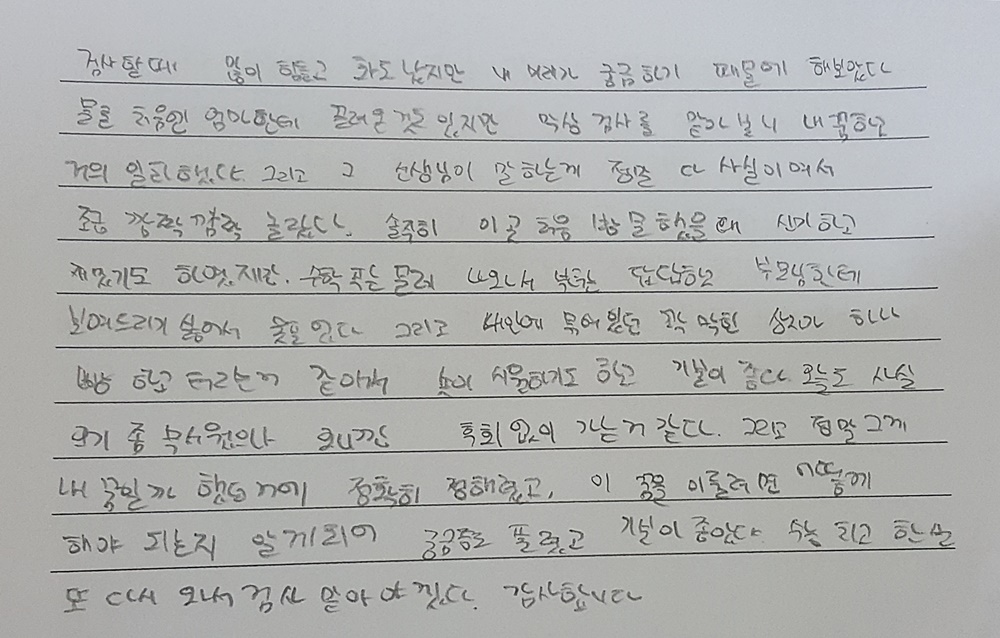 검사할때 많이 힘들고 화도 났지만 내 미래가 궁금하기 때문에 해보았다
물론 처음엔 엄마한테 끌려온것도 있지만 막상 검사를 맡아보니 내 꿈하고
거의 일치했다. 그리고 그 선생님이 말하는게 정말 다 사실이여서
조금 깜짝깜짝 놀랐다. 솔직히 이 곳 처음 방문했을때 신기하고
재밌기도 하였지만. 수학 푸는 문제 나와서 부터는 답답하고 부모님한테
보여드리기 싫어서 울고있다 그리고 내안에 묶여있던 꽉 막힌 상자가 하나
빵 하고 터지는거 같아서 속이 시원하기도 하고 기분이 좋다. 오늘도 사실
오기 좀 무서웠으나 오니깐 후회없이 가는거 같다. 그리고 정말 그게
내 꿈일까 했던거에 정확히 정해줬고, 이 꿈을 이룰려면 어떻게
해야 되는지 알게되어 궁금증도 풀렸고 기분이 좋았다 수능 치고 한번
또 다시 와서 검사 맡아야겠다. 감사합니다